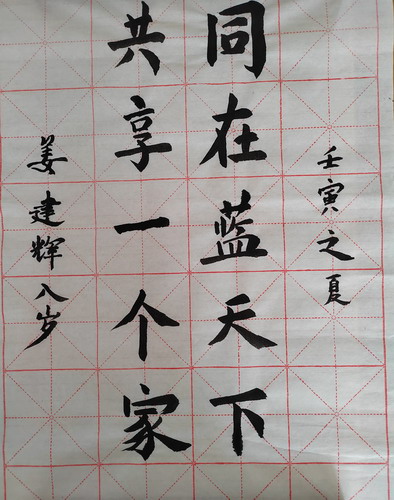 壬寅之夏
同在蓝天下
共享一个家
姜建辉八岁